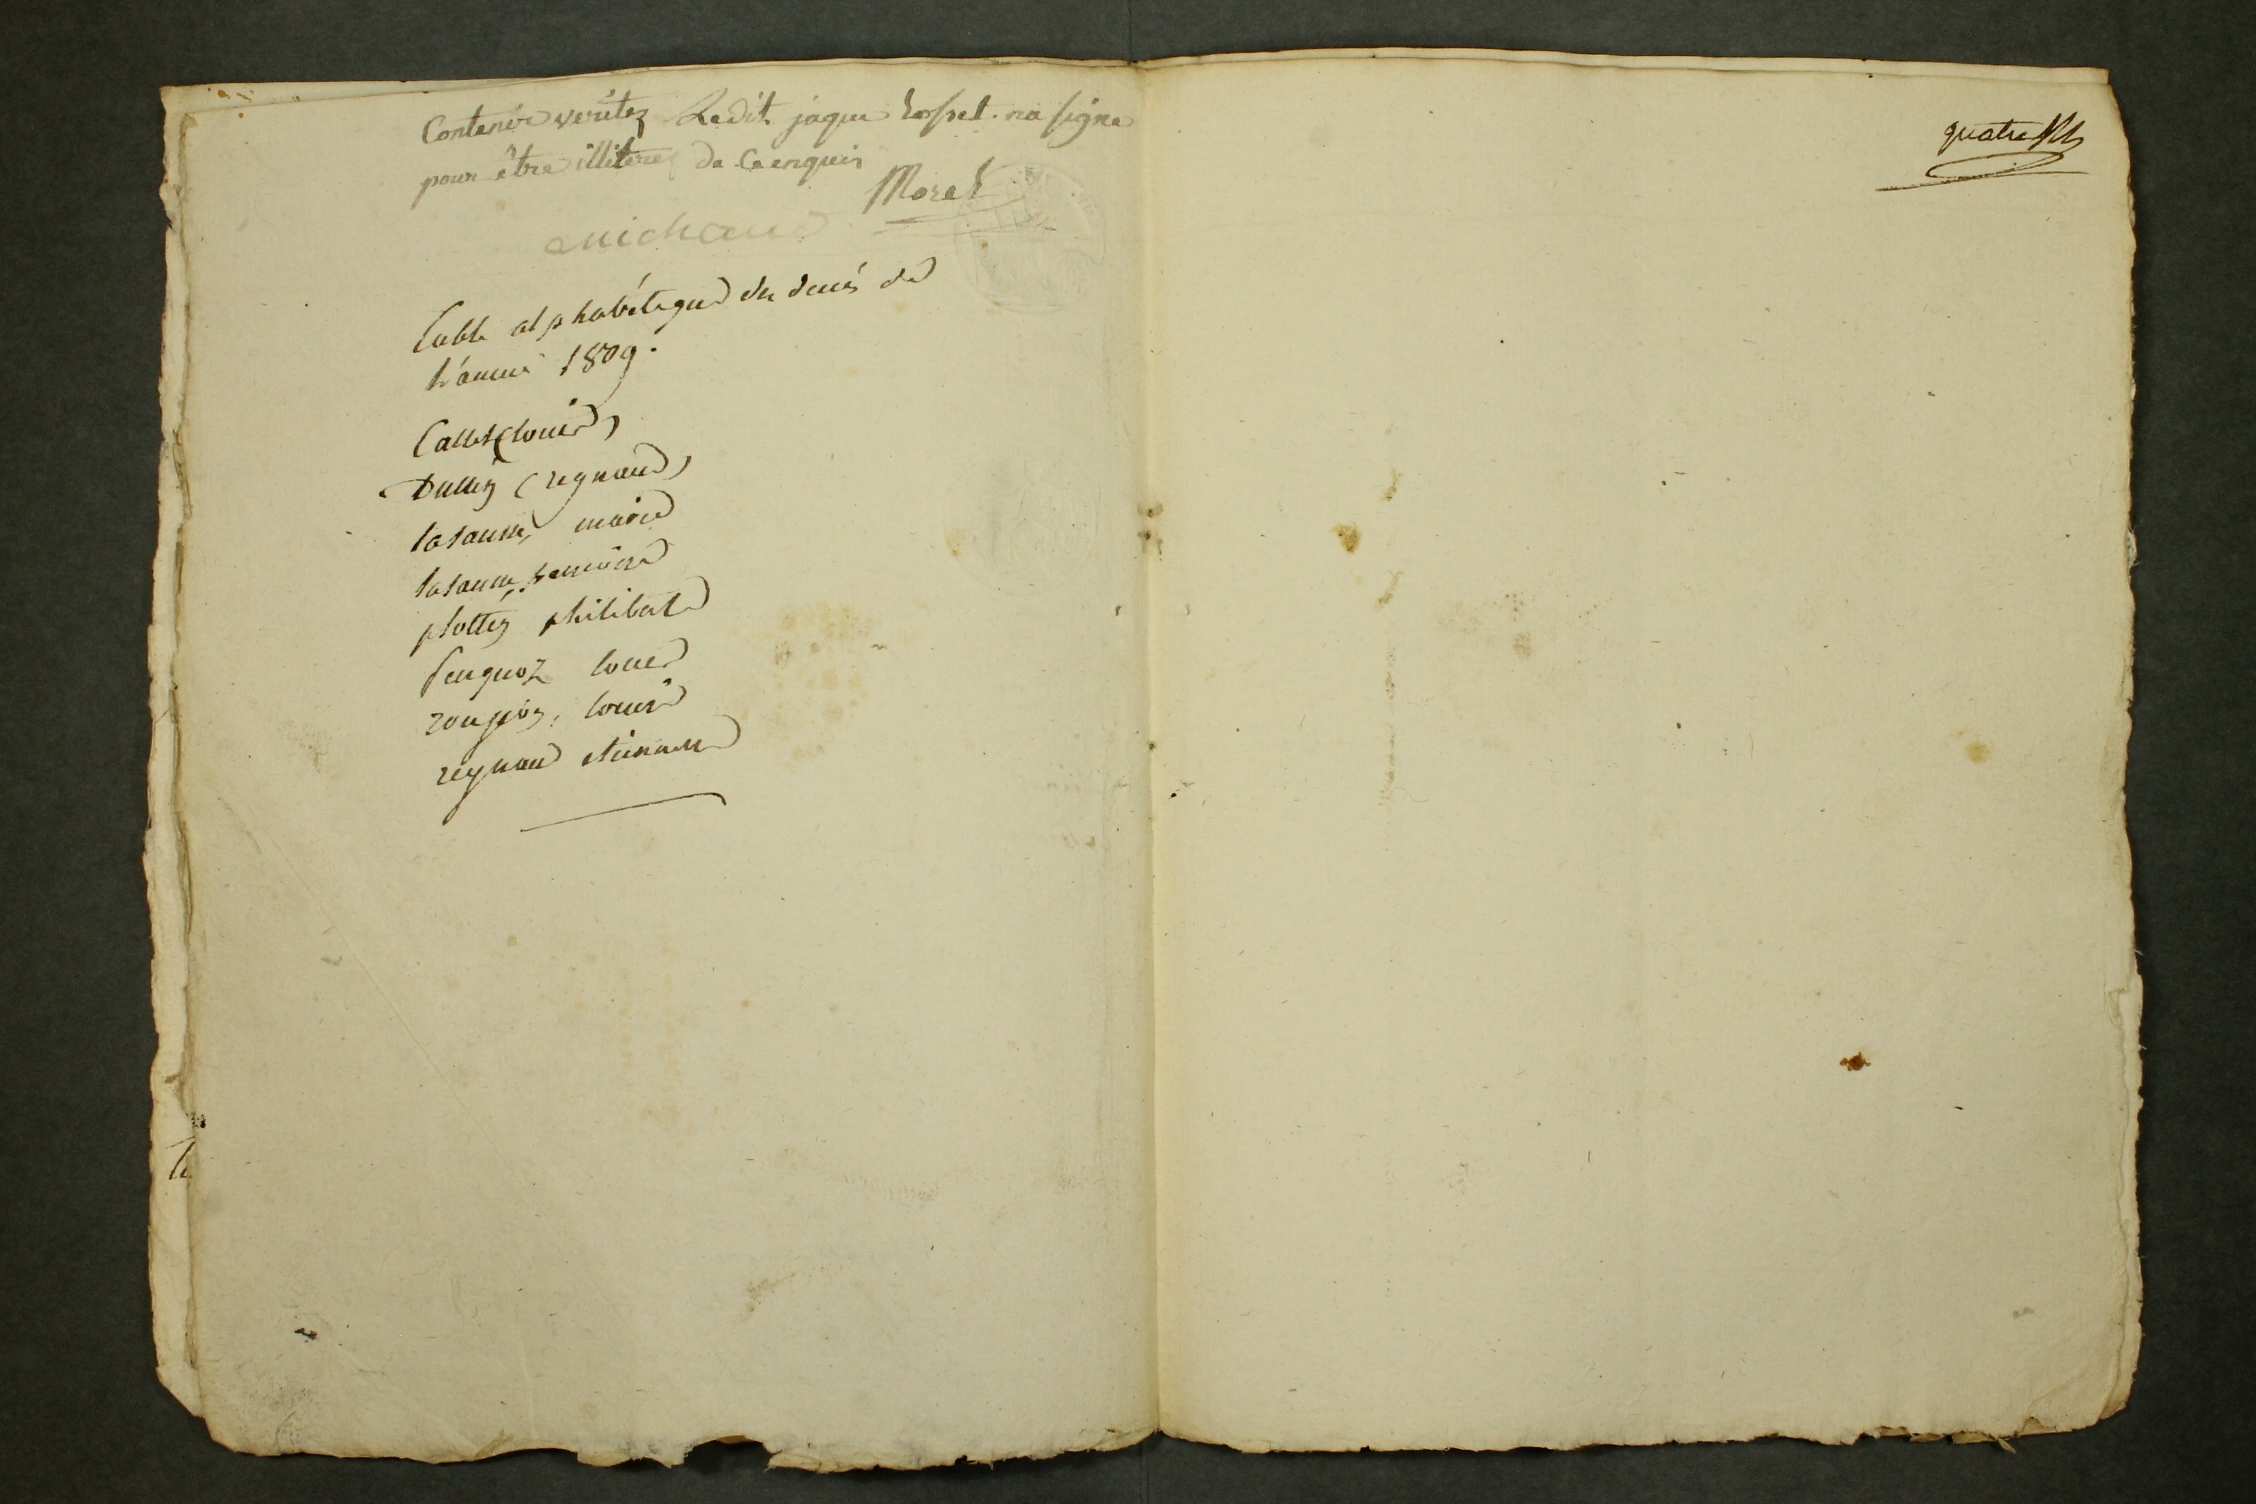 Contenir veritez Ledit jaque rosset na signe
pour être illiteré de ce enquis
Morel
michaud
table alphabétique du decés de
l'année 1809.
Callet (louis)
Dullin (reynaud)
lasausse, marie
lasausse,
plottin philibert
louis
louise
reynaud etienne
quatre